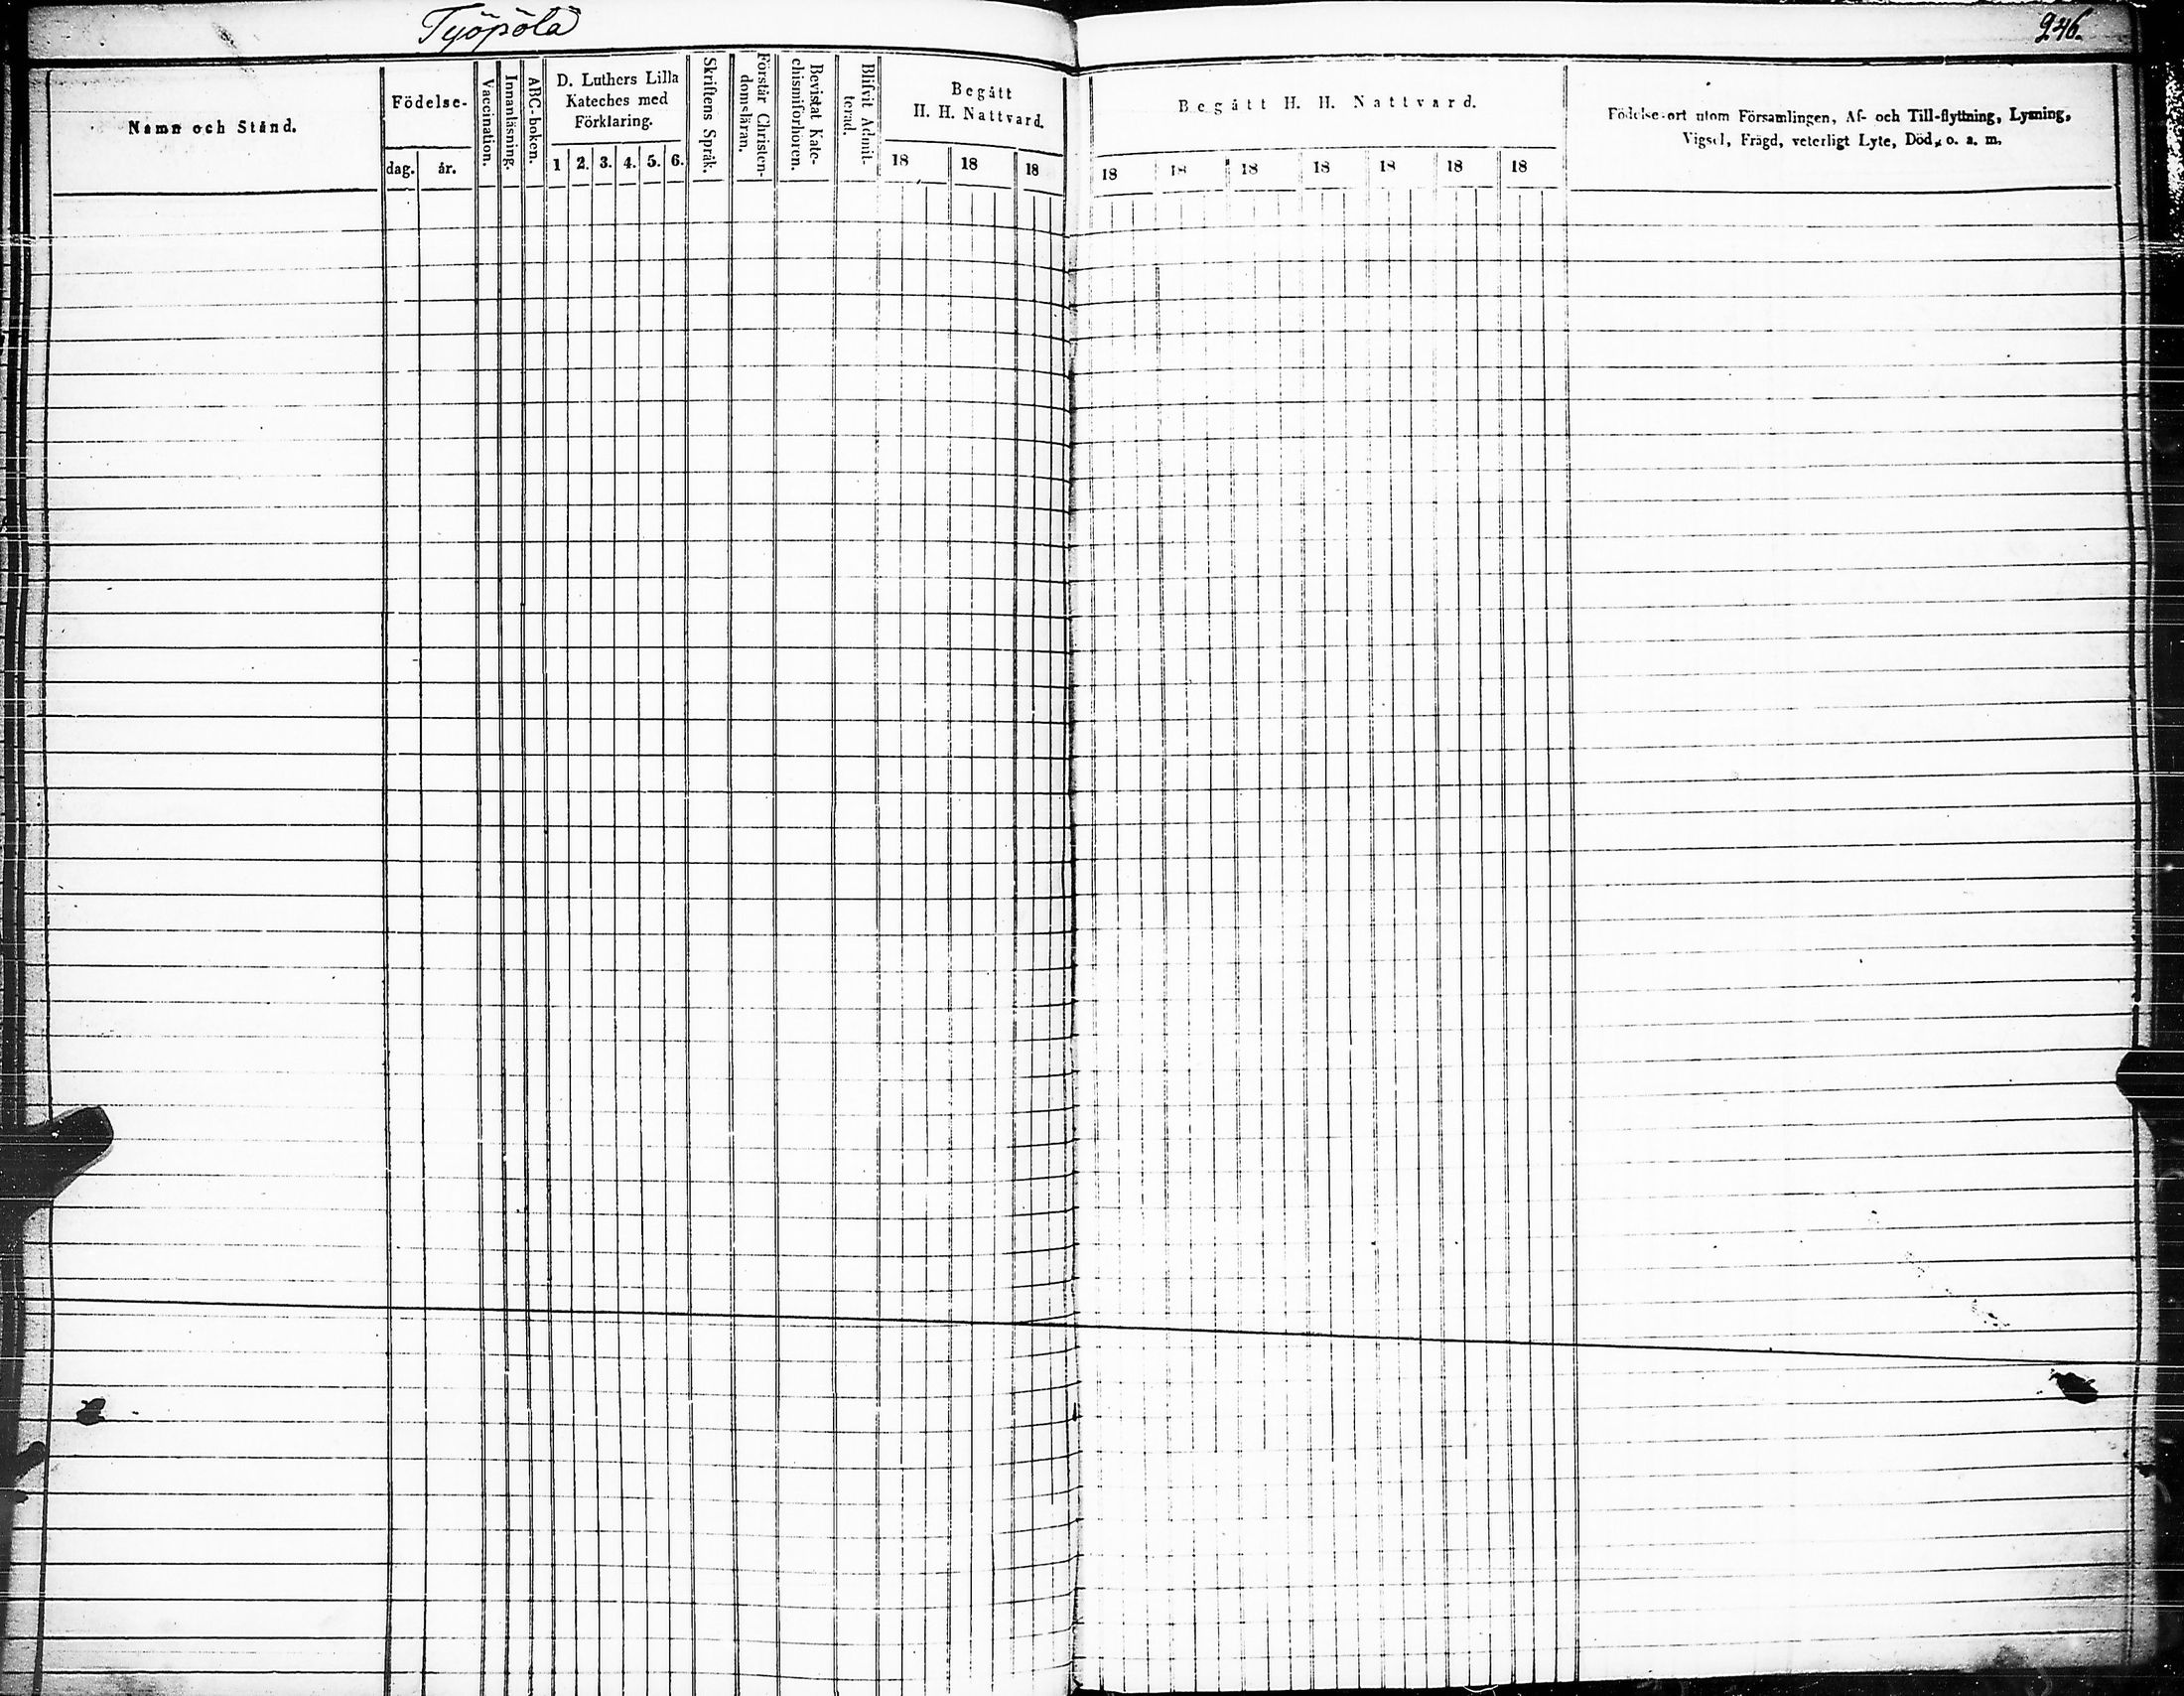 Työpölä
246.
Namn och Stånd.
Födelse-
dag.
år.
Vaccination.
Innanläsning.
ABC-boken.
D. Luthers Lilla
Kateches med
Förklaring.
1 2. 3. 4. 5. 6.
Skriftens Språk.
Förstår Christen-
domsläran.
Bevistat Kate-
chismiförhören.
Blifvit Admit-
terad.
Begått
H. H. Nattvard.
18 18 18
Begått H. H. Nattvard.
18 18 18 18 18 18 18
Födelse-ort utom Församlingen, Af- och Till-flyttning, Lysning,
Vigsel, Frägd, veterligt Lyte, Död, o. s. m.